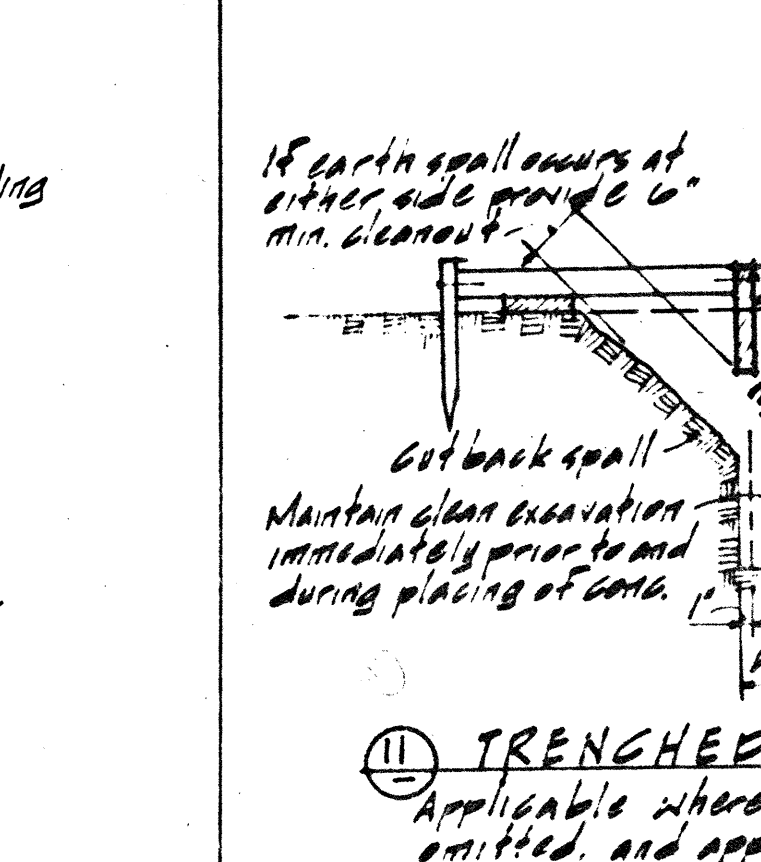 If earth spall occurs at
either side provide 6"
min. cleanout
Cut back spall
Maintain clean excavation
immediately prior to and
during placing of conc.
1"
11
TRENCHED
Applicable where
omitted, and app